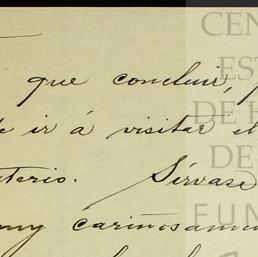 que concluir,
ir á visitar el
Sírvase
muy cariñosamen
CEN
EST
DE H
DE
FUN